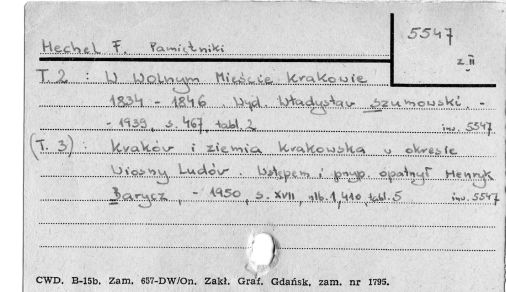 5547
z II
Hechel F. Pamiętniki
T. 2 : W Wolnym Mieście Krakowie
1834 - 1846. Wyd. Władysław Szumowski. -
- 1939, s. 467, tabl. 2 inw. 5547
(T. 3) : Kraków i ziemia krakowska w okresie
Wiosny Ludów. Wstępem i przyp. opatrzył Henryk
Barycz, - 1950, s. XVII, nlb. 1, 410, tabl. 5 inw. 5547
CWD. B-15b. Zam. 657-DW/On. Zakł. Graf. Gdańsk, zam. nr 1795.